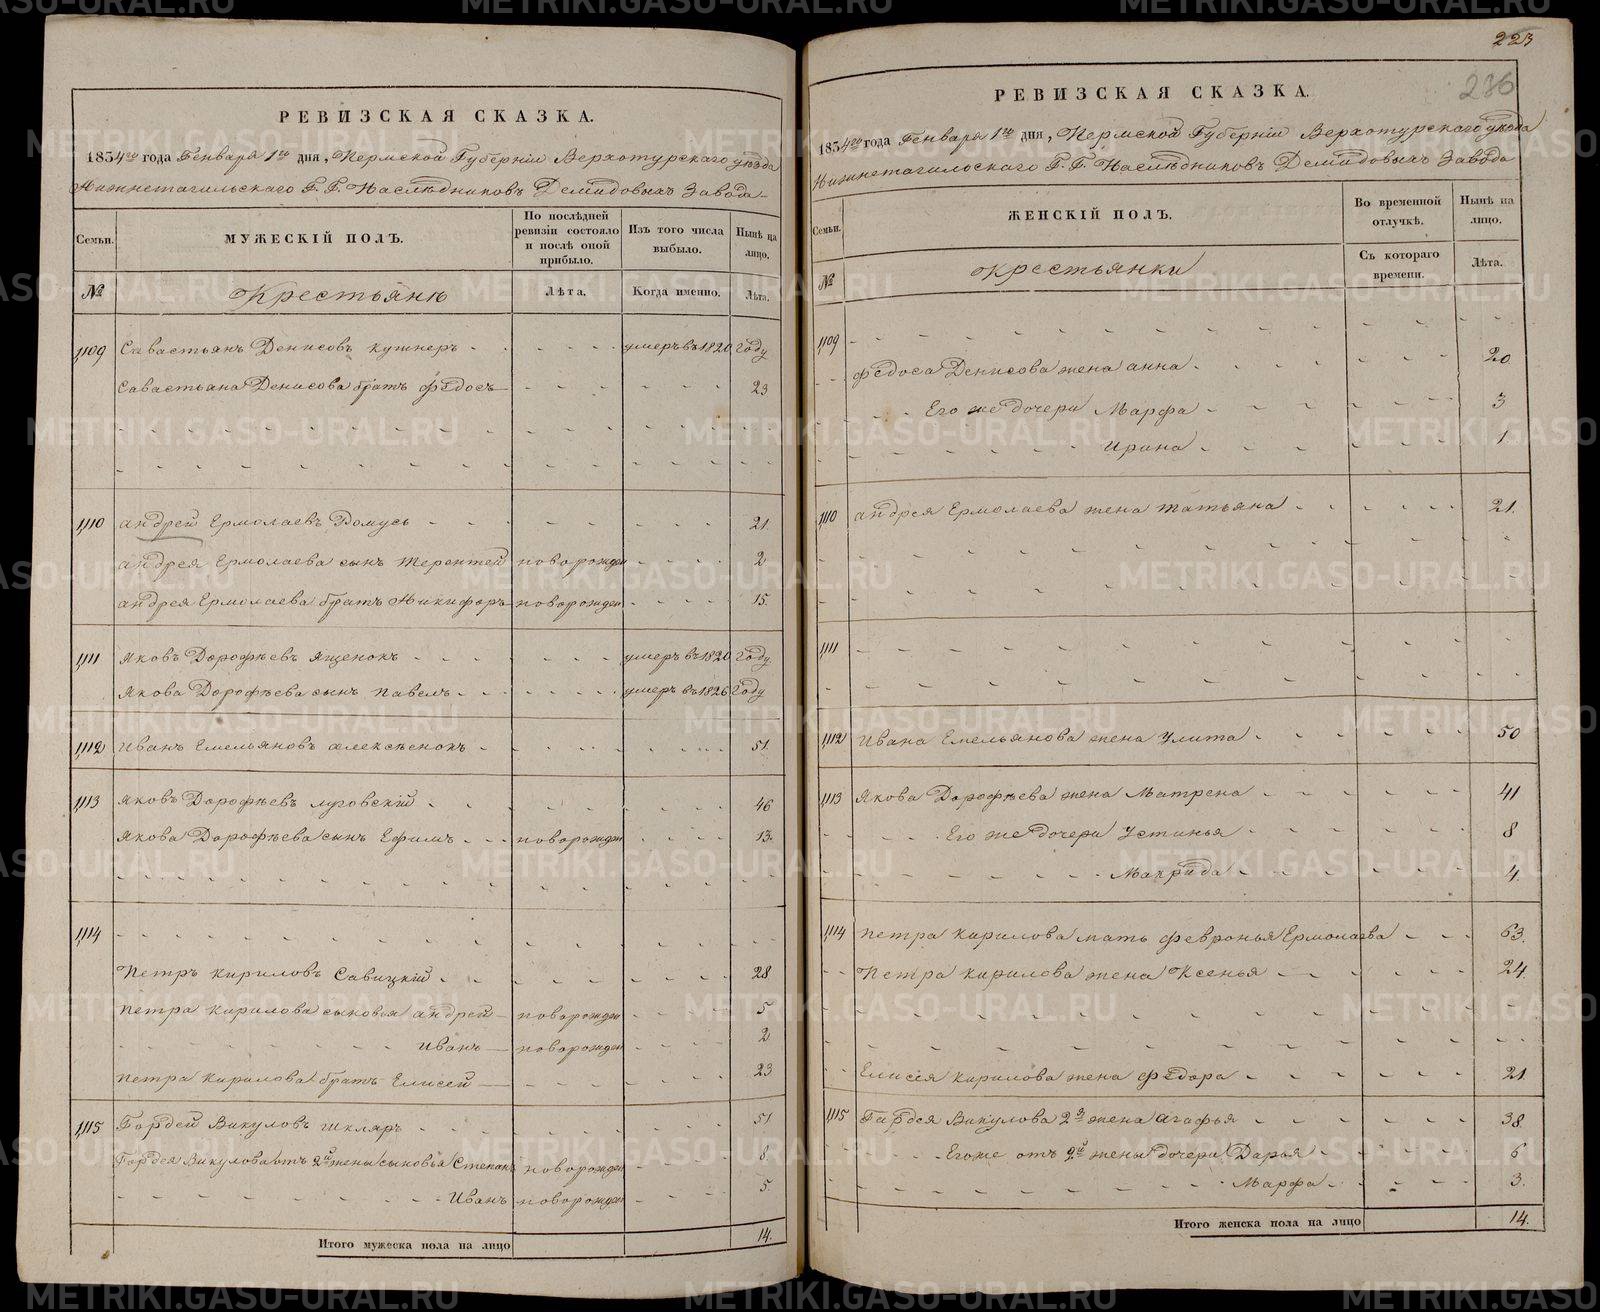 РЕВИЗСКАЯ СКАЗКА.
1834го года Генваря 1го дня, Пермской Губерніи Верхотурскаго уѣзда
Нижнетагильскаго Г.Г. Наслѣдниковъ Демидовыхъ Завода
Семьи.
МУЖЕСКІЙ ПОЛЪ.
По послѣдней ревизіи состояло и послѣ оной прибыло.
Изъ того числа выбыло.
Нынѣ на лицо.
№
Крестьянѣ
Лѣта.
Когда именно.
Лѣта.
1,109 Савастьянъ Денисовъ кушнеръ умеръ въ 1820 году
Савастьана Денисова братъ Ѳедосъ 23
1,110 андрей Ермолаевъ Домусь 21.
андрея Ермолаева сынъ терентей новорожден 2
андрея Ермолаева братъ Никифоръ новорожден 15.
1,111 Яковъ Дорофѣевъ ященокъ умеръ въ 1820 Году
Якова Дорофѣева сынъ павелъ умеръ въ 1826 Году
1,112 Иванъ Емельяновъ алексѣенокъ 51.
1,113 Яковъ Дорофѣевъ луговскій 46
Якова Дорофѣева сынъ Ефимъ новорожден 13.
1,114
Петръ кириловъ Савицкій 28
Петра кирилова сыновья андрей новорожден 5
Иванъ новорожден 2
петра кирилова братъ Елисей 23
1,115 Гордей Викуловъ шкляръ 51
Гордея Викулова отъ 2й жены сыновья Степанъ новорожден 8
Иванъ новорожден 5.
Итого мужеска пола на лицо 14.
223
236
РЕВИЗСКАЯ СКАЗКА.
1834го года Генваря 1го дня, Пермской Губерніи Верхотурскаго уѣзда
Нижнетагилоскаго Г.Г. Наслѣдниковъ Демидовыхъ Завода
Семьи.
ЖЕНСКІЙ ПОЛЪ.
Во временной отлучкѣ.
Нынѣ на лицо.
№
крестьянки
Съ котораго времени.
Лѣта.
1,109
Ѳедоса Денисова жена анна 20.
Его же дочери Марфа 3
Ирина 1
1,110 андрея Ермолаева жена татьяна 21.
1,111
1,112 Ивана Емельянова жена Улита 50
1,113 Якова Дорофѣева жена Матрена 41
Его же дочери Устинья 8
Макрида 4.
1,114 петра кирилова мать февронья Ермолаева 63.
Петра кирилова жена Ксенья 24
Елисѣя кирилова жена федора 21
1,115 Гордея Викулова 2я жена агафья 38.
Егоже отъ 2й жены дочери Дарья 6
Марфа 3.
Итого женска пола на лицо 14.
METRIKI.GASO-URAL.RU